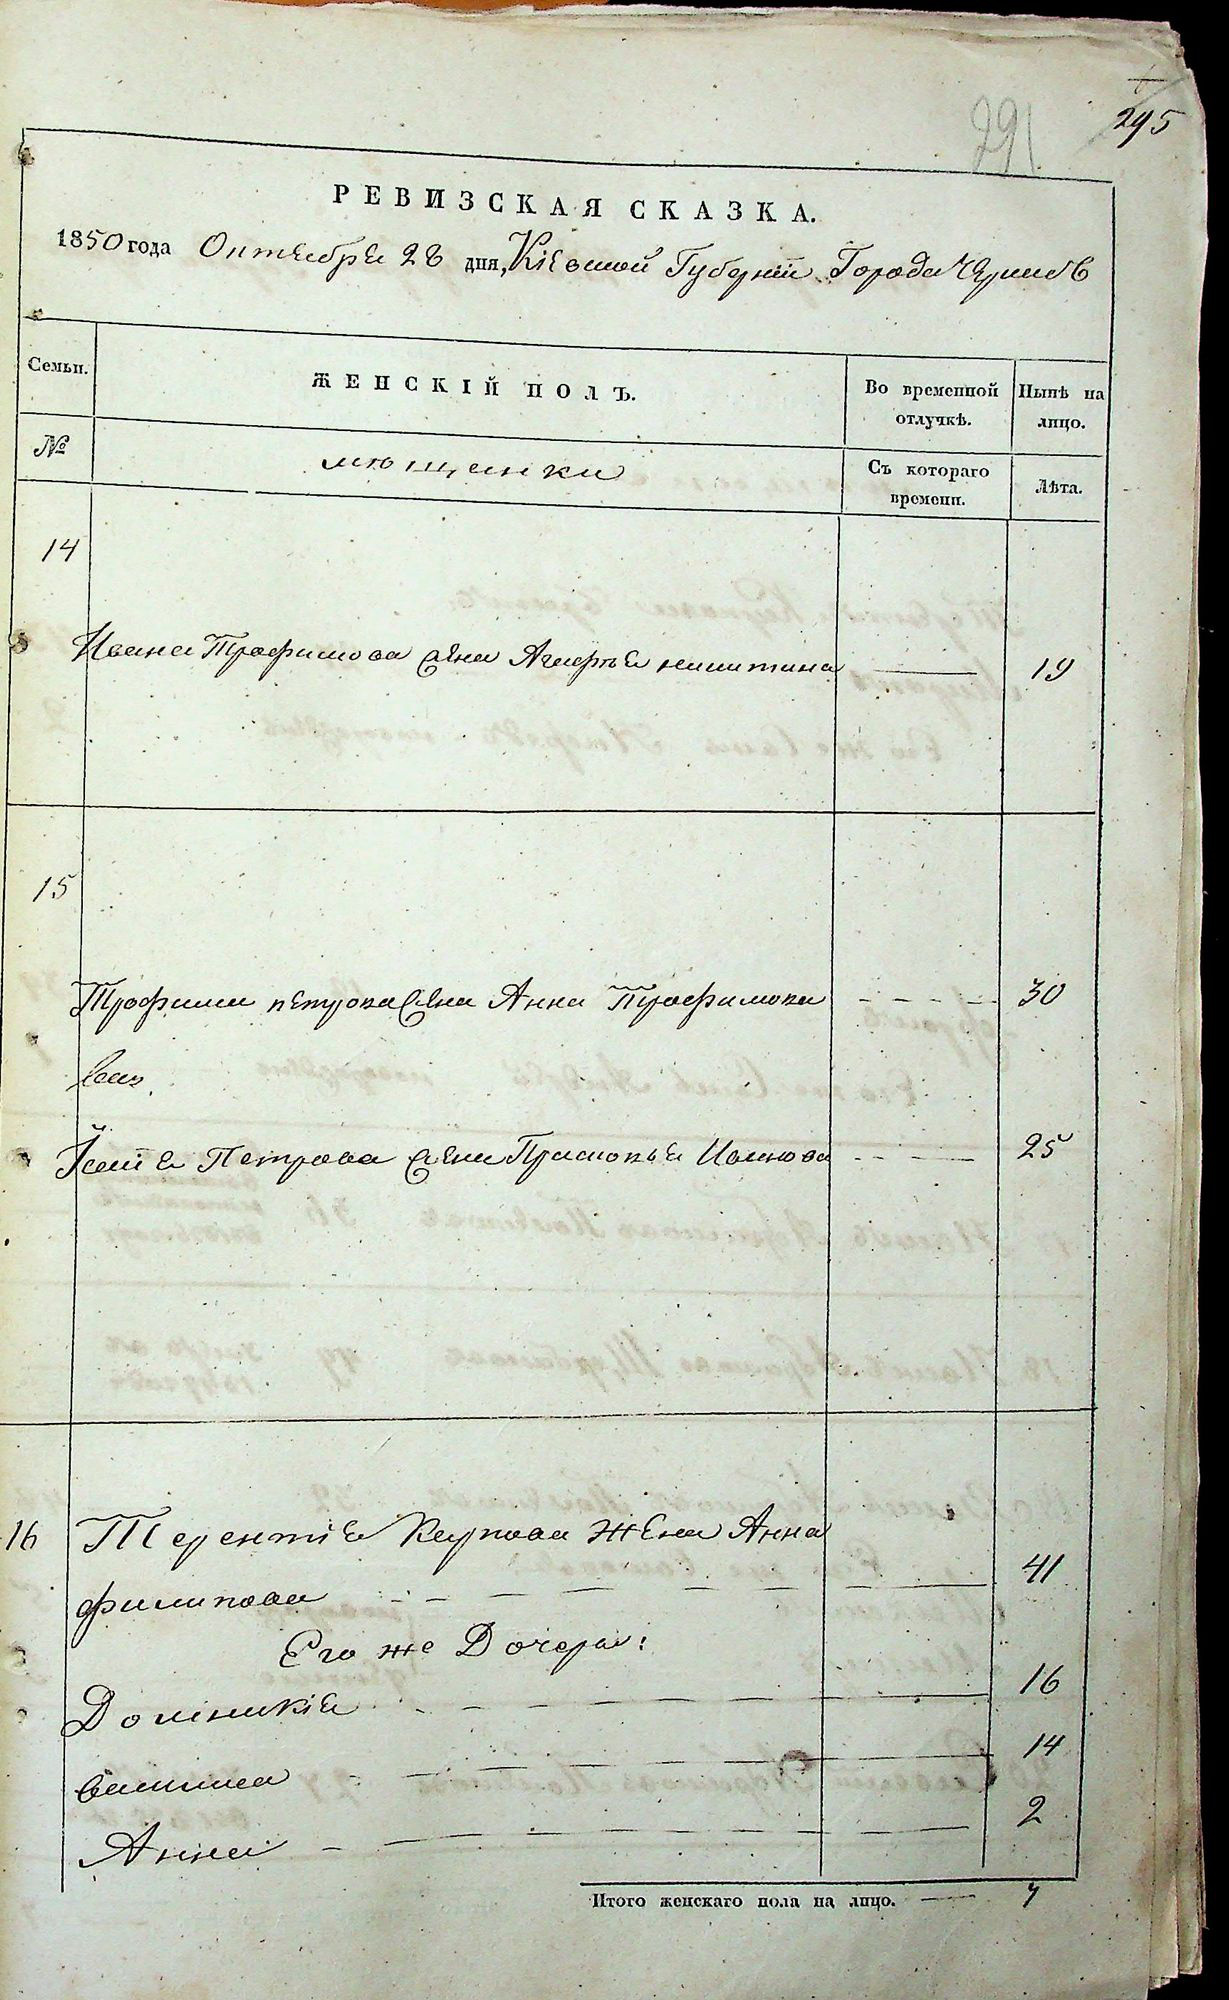 291
295
РЕВИЗСКАЯ СКАЗКА.
1850 года Октебре 28 дня, Кіевской Губерніи Города
Семьи.
ЖЕНСКІЙ ПОЛЪ.
Во временной отлучкѣ.
Нынѣ на лицо.
№
мѣщенки
Съ котораго времени.
Лѣта.
14
Ивана Трофимова жена никитина — 19
15
Трофима петрова жена Анна Трофимова - - - - 30
Петрова жена - - - 25
16 Терентіе Карпова жена Анна
филипова - - - 41
Его же Дочери:
Доминикіе - - - 16
- - - 14
Анна - - - 2
Итого женскаго пола на лицо. — 7